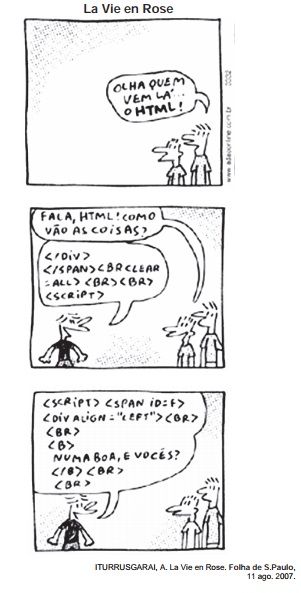 La Vie en Rose
OLHA QUEM
VEM LÁ...
O HTML!
www.adaoonline.com.br
2002
FALA, HTML! COMO
VÃO AS COISAS?
</DIV>
</SPAN><BR CLEAR
=ALL> <BR><BR>
<SCRIPT>
<SCRIPT> <SPAN ID=F>
<DIV ALIGN="LEFT"><BR>
<BR>
<B>
NUMA BOA, E VOCÊS?
</B> <BR>
<BR>
ITURRUSGARAI, A. La Vie en Rose. Folha de S.Paulo,
11 ago. 2007.